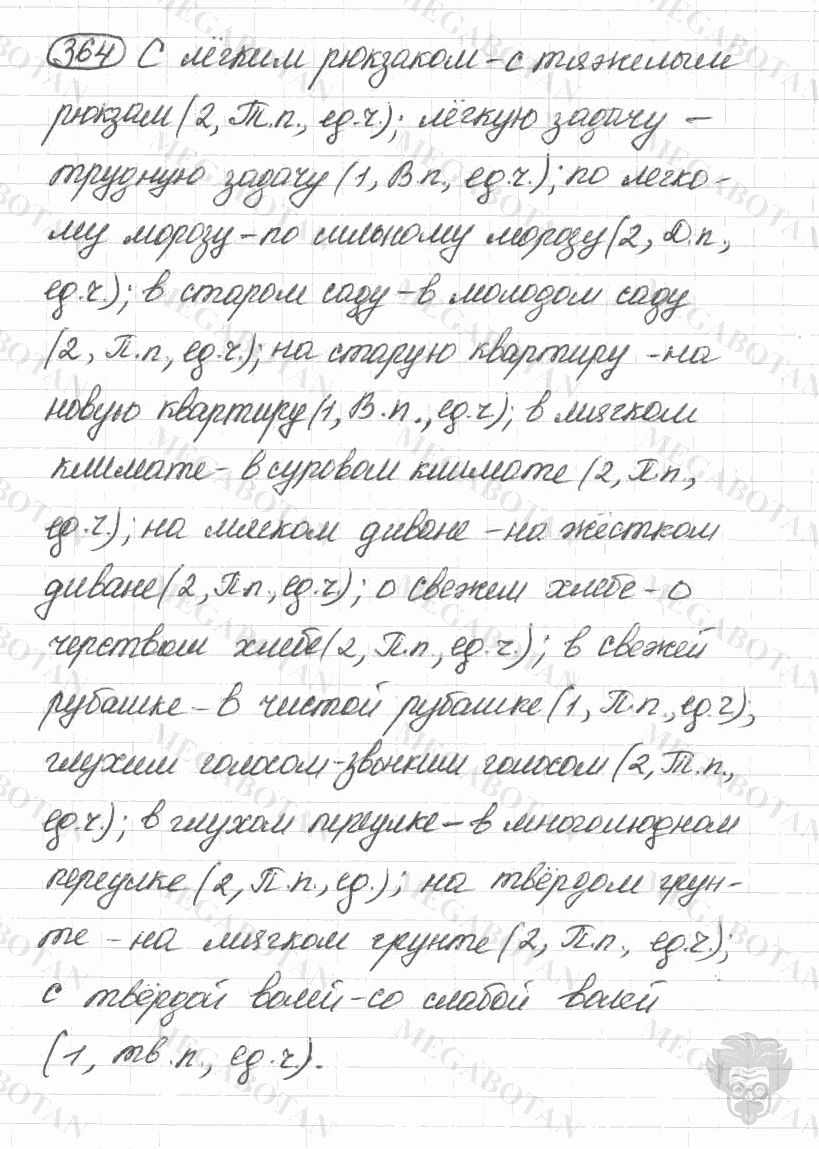 364 С лёгким рюкзаком – с тяжелым
рюкзам (2, Т.п., ед.ч.); лёгкую задачу –
трудную задачу (1, В.п., ед.ч.); по легко-
му морозу – по сильному морозу (2, Д.п.,
ед.ч.); в старом саду – в молодом саду
(2, П.п., ед.ч.); на старую квартиру – на
новую квартиру (1, В.п., ед.ч); в мягком
климате – в суровом климате (2, П.п.,
ед.ч.); на мягком диване – на жёстком
диване (2, П.п., ед.ч.); о свежем хлебе – о
черством хлебе (2, П.п., ед.ч.); в свежей
рубашке – в чистой рубашке (1, П.п., ед.ч);
глухим голосом – звонким голосом (2, Т.п.,
ед.ч.); в глухом переулке – в многолюдном
переулке (2, П.п., ед.); на твёрдом грун-
те – на мягком грунте (2, П.п., ед.ч.);
с твёрдой волей – со слабой волей
(1, тв.п., ед.ч.).
MEGABOTAN